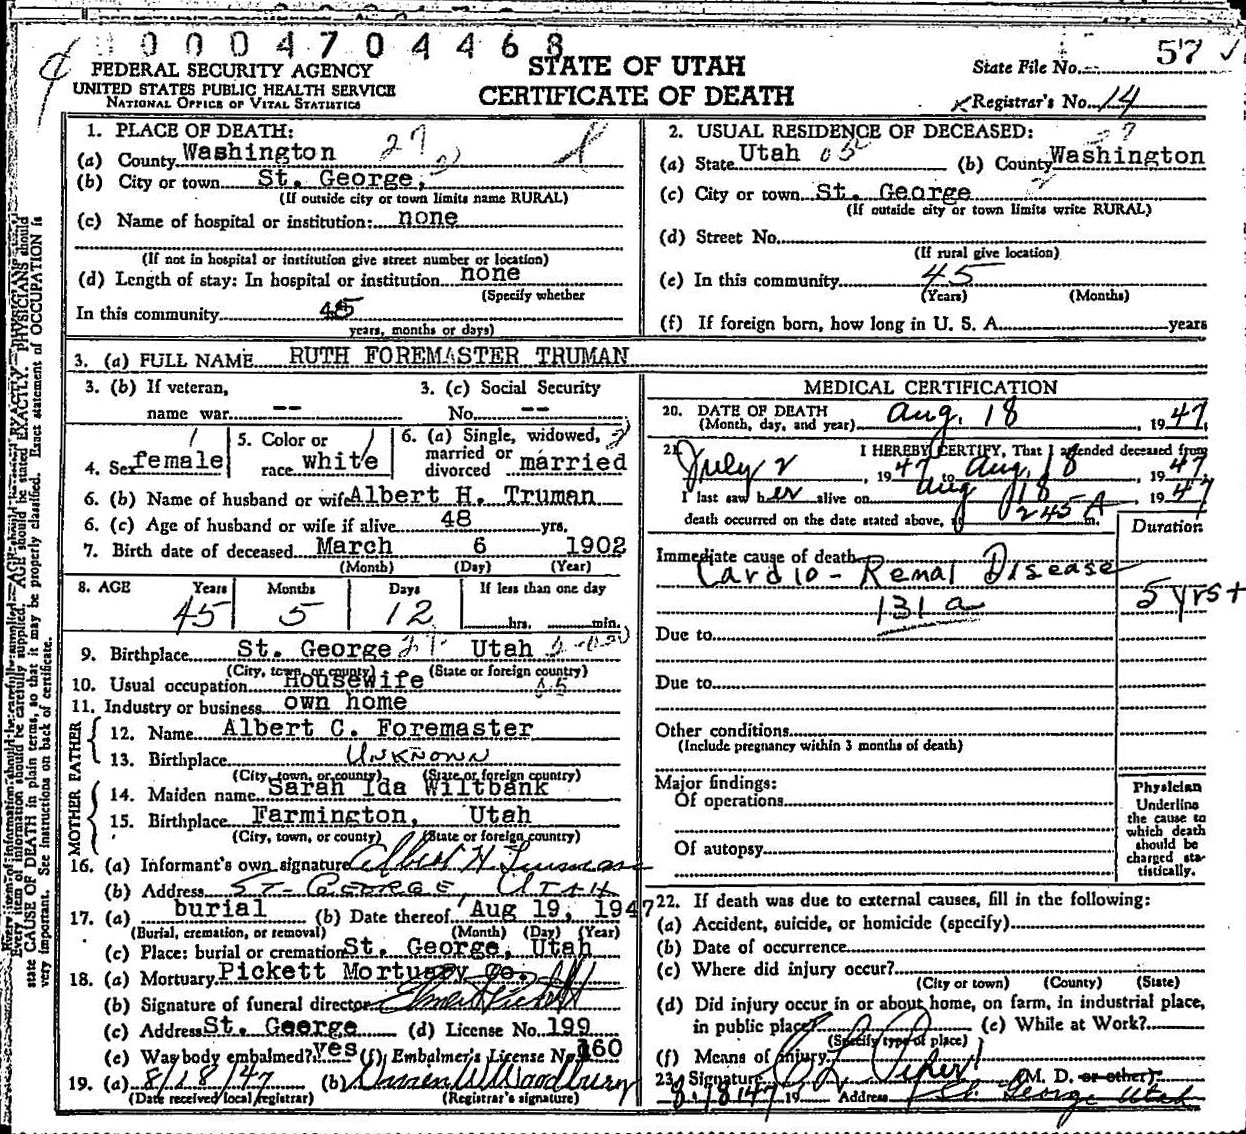 00004704468
FEDERAL SECURITY AGENCY
UNITED STATES PUBLIC HEALTH SERVICE
NATIONAL OFFICE OF VITAL STATISTICS
STATE OF UTAH
CERTIFICATE OF DEATH
State File No. 57
Registrar's No. 14
1. PLACE OF DEATH: 27
(a) County Washington
(b) City or town St. George,
(If outside city or town limits name RURAL)
(c) Name of hospital or institution: none
(If not in hospital or institution give street number or location)
(d) Length of stay: In hospital or institution none
(Specify whether
In this community 45
years, months or days)
2. USUAL RESIDENCE OF DECEASED:
(a) State Utah (b) County Washington
(c) City or town St. George
(If outside city or town limits write RURAL)
(d) Street No.
(If rural give location)
(e) In this community 45
(Years) (Months)
(f) If foreign born, how long in U. S. A. years
3. (a) FULL NAME RUTH FOREMASTER TRUMAN
3. (b) If veteran, 3. (c) Social Security
name war -- No. --
4. Sex female 5. Color or race white 6. (a) Single, widowed, married or divorced married
6. (b) Name of husband or wife Albert H. Truman
6. (c) Age of husband or wife if alive 48 yrs.
7. Birth date of deceased March 6 1902
(Month) (Day) (Year)
8. AGE Years Months Days If less than one day
45 5 12 hrs. min.
9. Birthplace St. George Utah
(City, town, or county) (State or foreign country)
10. Usual occupation Housewife
11. Industry or business own home
FATHER
12. Name Albert C. Foremaster
13. Birthplace UNKNOWN
(City, town, or county) (State or foreign country)
MOTHER
14. Maiden name Sarah Ida Wiltbank
15. Birthplace Farmington, Utah
(City, town, or county) (State or foreign country)
16. (a) Informant's own signature Albert H. Truman
(b) Address ST. GEORGE, UTAH
17. (a) burial (b) Date thereof Aug 19, 1947
(Burial, cremation, or removal) (Month) (Day) (Year)
(c) Place: burial or cremation St. George, Utah
18. (a) Mortuary Pickett Mortuary Co.
(b) Signature of funeral director Pickett
(c) Address St. George (d) License No. 199
(e) Was body embalmed? yes (f) Embalmer's License No. 160
19. (a) 8/18/47 (b) Woodbury
(Date received local registrar) (Registrar's signature)
MEDICAL CERTIFICATION
20. DATE OF DEATH
(Month, day, and year) Aug. 18, 1947
21. I HEREBY CERTIFY, That I attended deceased from
July 2, 1947 to Aug. 18 1947
I last saw her alive on Aug 18 1947
death occurred on the date stated above, at 245 A m.
Duration
Immediate cause of death
Cardio-Renal Disease
131a 5 yrs+
Due to
Due to
Other conditions
(Include pregnancy within 3 months of death)
Major findings:
Of operations
Of autopsy
Physician
Underline
the cause to
which death
should be
charged sta-
tistically.
22. If death was due to external causes, fill in the following:
(a) Accident, suicide, or homicide (specify)
(b) Date of occurrence
(c) Where did injury occur?
(City or town) (County) (State)
(d) Did injury occur in or about home, on farm, in industrial place,
in public place? (e) While at Work?
(Specify type of place)
(f) Means of injury
23. Signature (M. D. or other)
8/18 47 19 Address St. George Utah
state CAUSE OF DEATH in plain terms, so that it may be properly classified. Exact statement of OCCUPATION is
very important. See instructions on back of certificate.